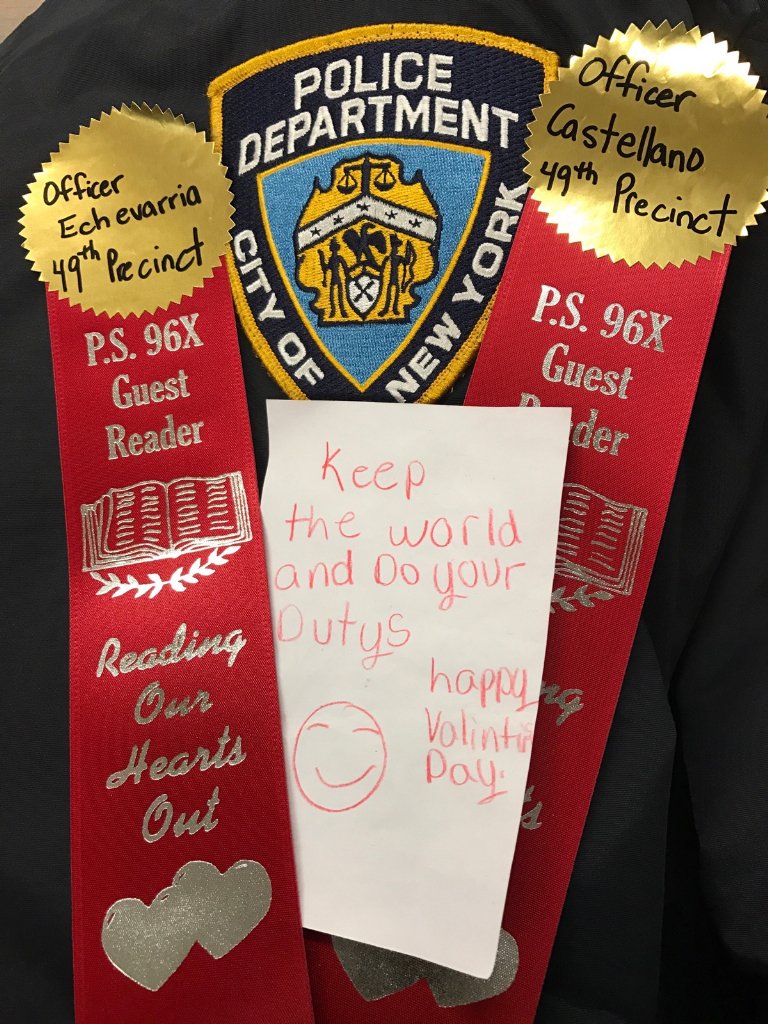 POLICE
DEPARTMENT
CITY OF
NEW YORK
Officer
Echevarria
49th Precinct
P.S. 96X
Guest
Reader
Reading
Our
Hearts
Out
Officer
Castellano
49th Precinct
P.S. 96X
Guest
Keep
the world
and Do your
Dutys
happy
Day.